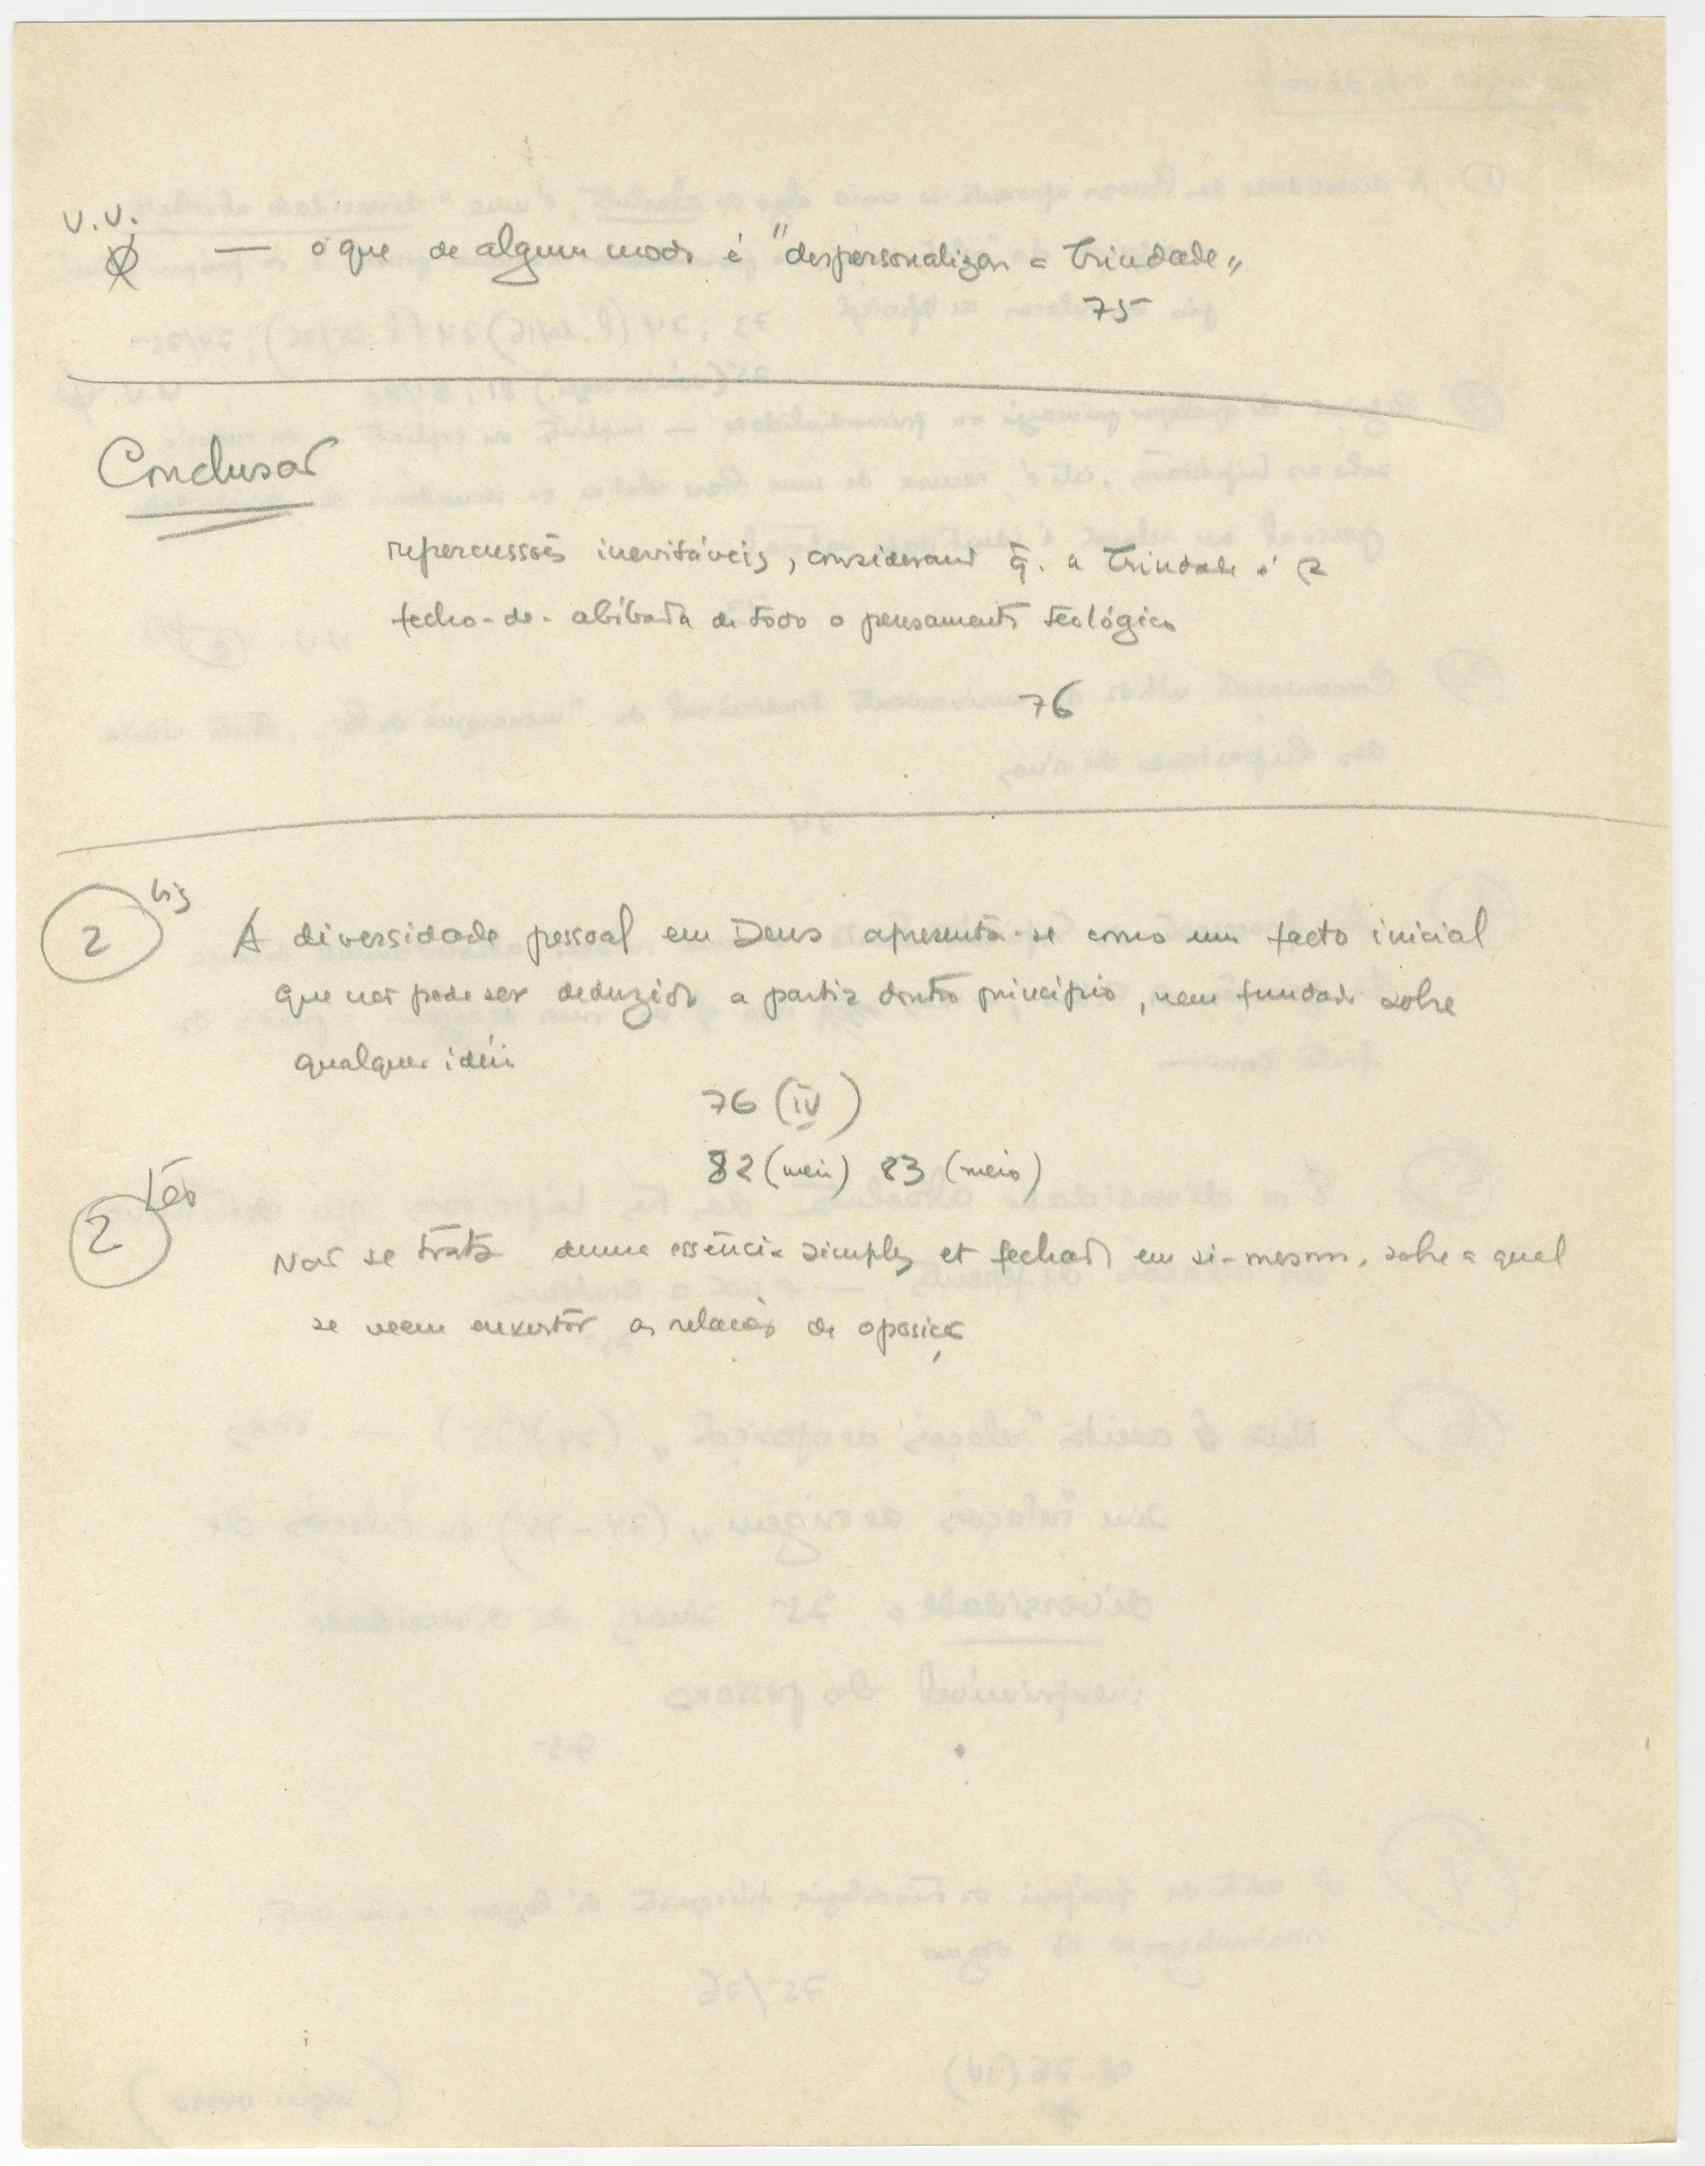 V.V.
— o que de algum modo é "despersonalizar a Trindade"
75
Conclusão
repercussões inevitáveis, considerando q̃. a Trindade é o
fecho-de-abóbada de todo o pensamento teológico
76
2 bis A diversidade pessoal em Deus apresenta-se como um facto inicial
que não pode ser deduzido a partir doutro princípio, nem fundado sobre
qualquer ideia
76 (IV)
82 (meio) 83 (meio)
2 ter
Não se trata duma essência simples et fechada em si-mesma, sobre a qual
se veem enxertar as relações de oposição